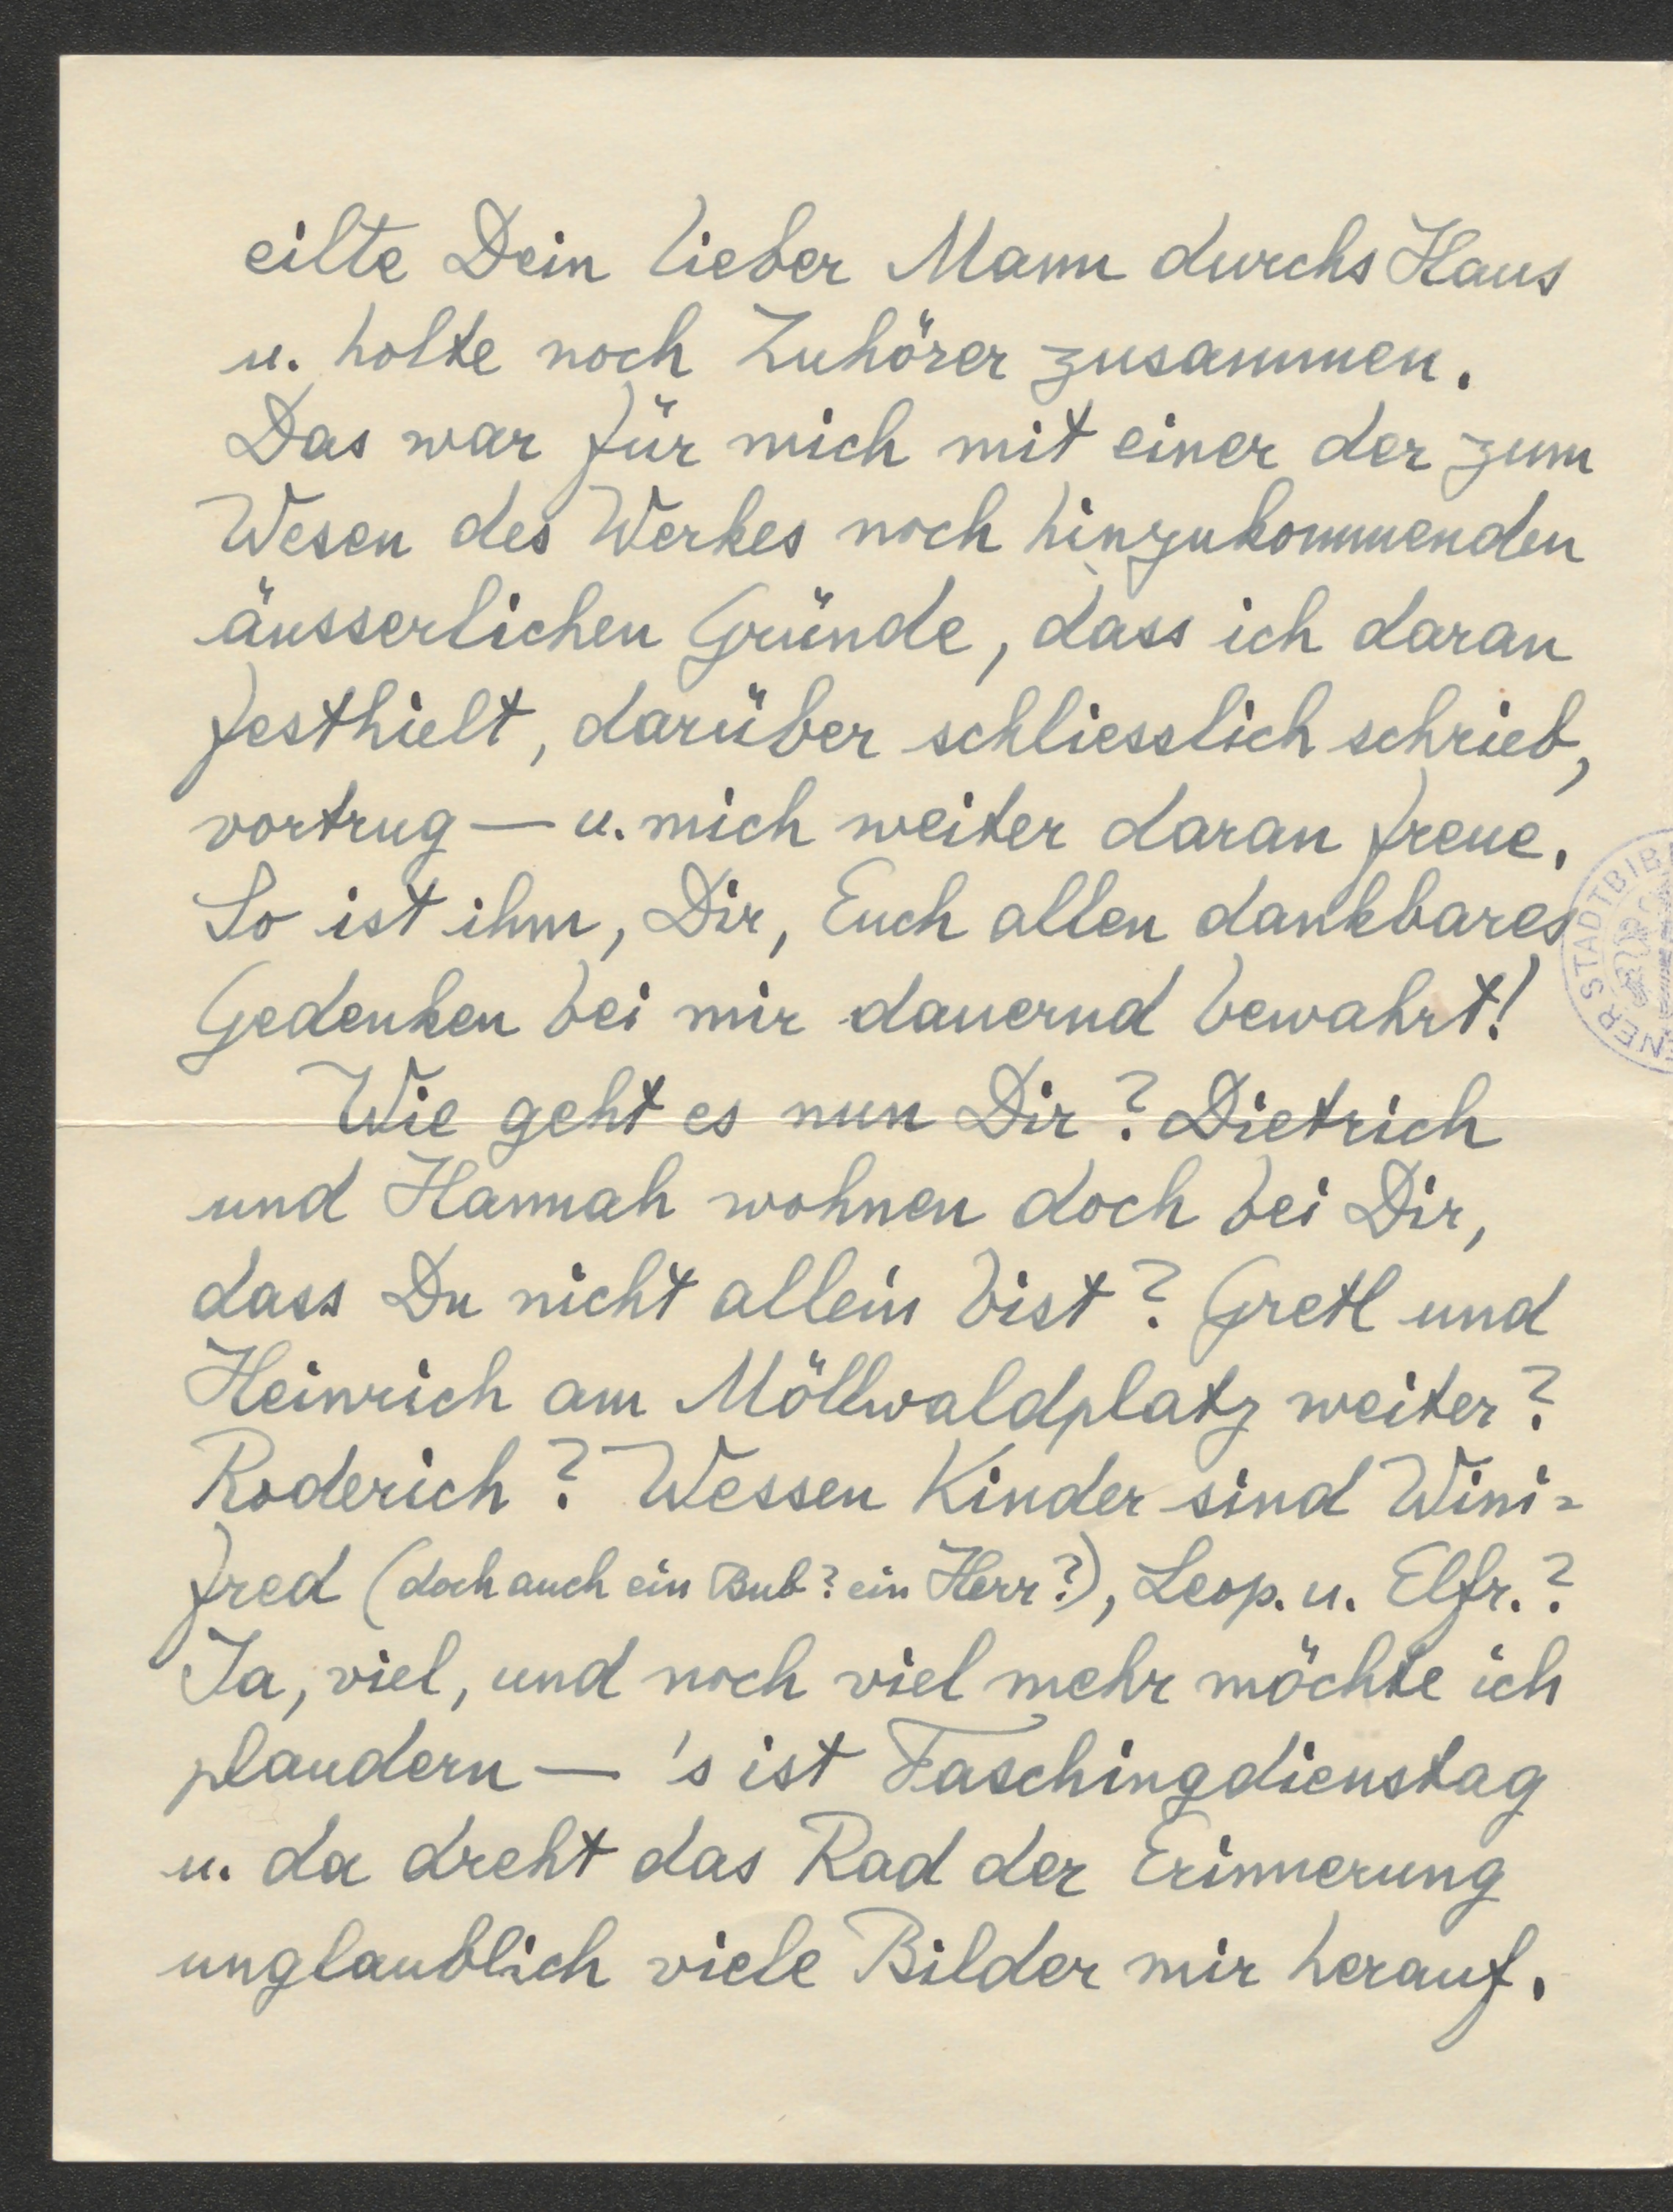 eilte Dein lieber Mann durchs Haus
u. holte noch Zuhörer zusammen.
Das war für mich mit einer der zum
Wesen des Werkes noch hinzukommenden
äusserlichen Gründe, dass ich daran
festhielt, darüber schliesslich schrieb,
vortrug — u. mich weiter daran freue.
So ist ihm, Dir, Euch allen dankbares
Gedenken bei mir dauernd bewahrt!
Wie geht es nun Dir? Dietrich
und Hannah wohnen doch bei Dir,
dass Du nicht allein bist? Gretl und
Heinrich am Möllwaldplatz weiter?
Roderich? Wessen Kinder sind Wini=
fred (doch auch ein Bub? ein Herr?), Leop. u. Elfr.?
Ja, viel, und noch viel mehr möchte ich
plaudern — 's ist Faschingdienstag
u. da dreht das Rad der Erinnerung
unglaublich viele Bilder mir herauf.
ENER STADTBIB